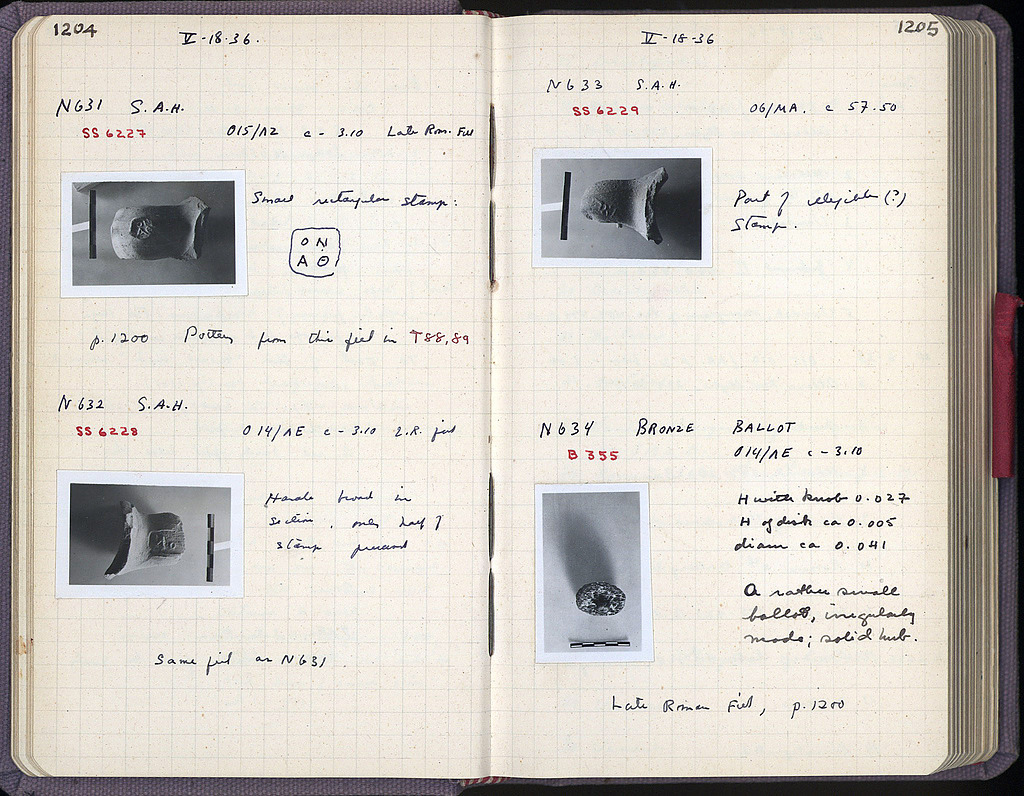 1204
V-18-36.
N631 S.A.H.
SS 6227 O15/ΛZ c - 3.10 Late Rom. Fill
Small rectangular stamp:
O N
A Θ
p. 1200 Pottery from this fill in T88, 89
N632 S.A.H.
SS 6228 O14/ΛE c - 3.10 L.R. fill
Handle broad in
section, only half of
stamp preserved
Same fill as N631
1205
V-18-36
N633 S.A.H.
SS 6229 O6/MA. c 57.50
Part of illegible (?)
stamp.
N634 BRONZE BALLOT
B 355 O14/ΛE c - 3.10
H with knob 0.027
H of disk ca 0.005
diam ca 0.041
A rather small
ballot, irregularly
made; solid hub.
Late Roman Fill, p. 1200